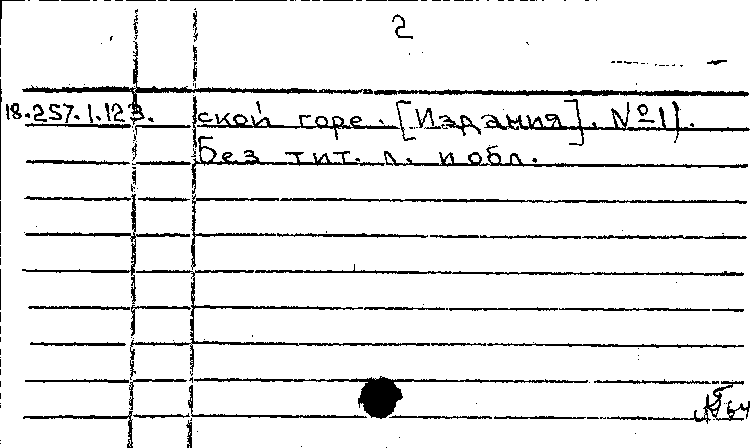 2
18.257.1.123. ской горе. [Издания]. №1).
Без тит. л. и обл.